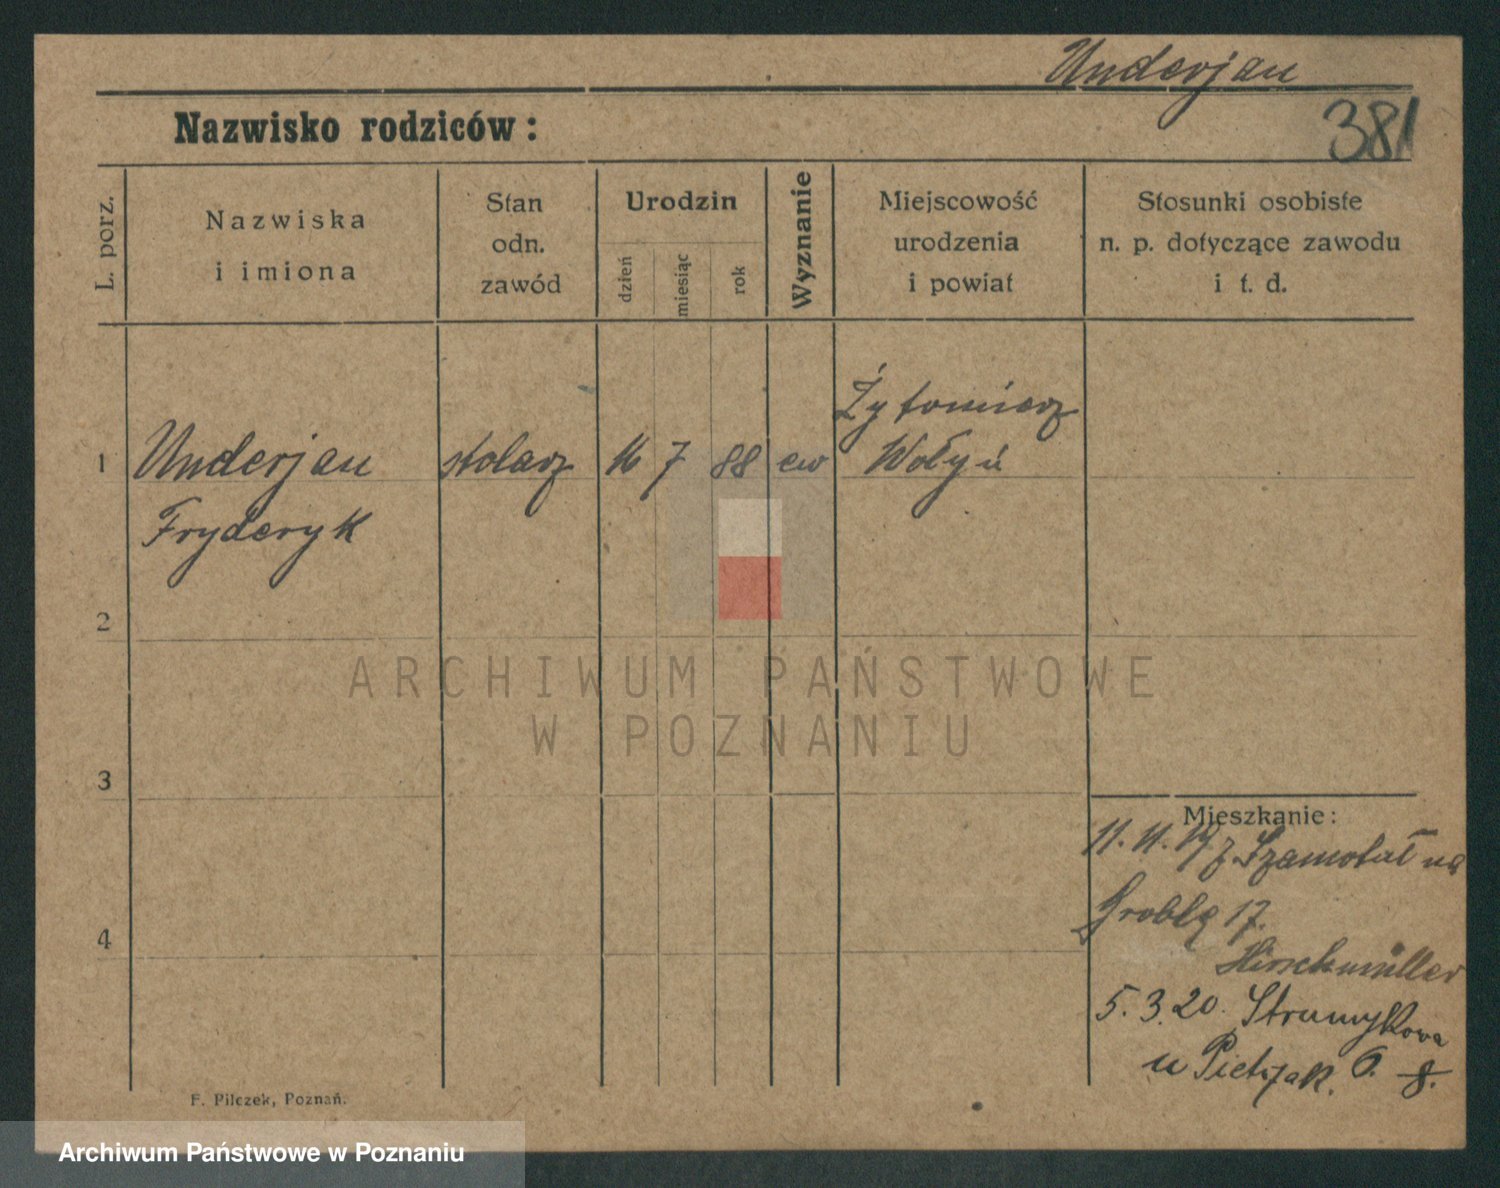 Underjan
381
Nazwisko rodziców:
L. porz.
Nazwiska
i imiona
Stan
odn.
zawód
Urodzin
dzień
miesiąc
rok
Wyznanie
Miejscowość
urodzenia
i powiat
Stosunki osobiste
n. p. dotyczące zawodu
i t. d.
1
Underjan
Fryderyk
stolarz
16
7
88
ew
Żytomierz
Wołyń
2
3
4
ARCHIWUM PAŃSTWOWE
W POZNANIU
Mieszkanie:
11. 11. 19 z Szamotuł na
Groblę 17.
Hirschmüller
5. 3. 20. Strumykowa
u Pietrzak. 6. 8.
F. Pilczek, Poznań.
Archiwum Państwowe w Poznaniu